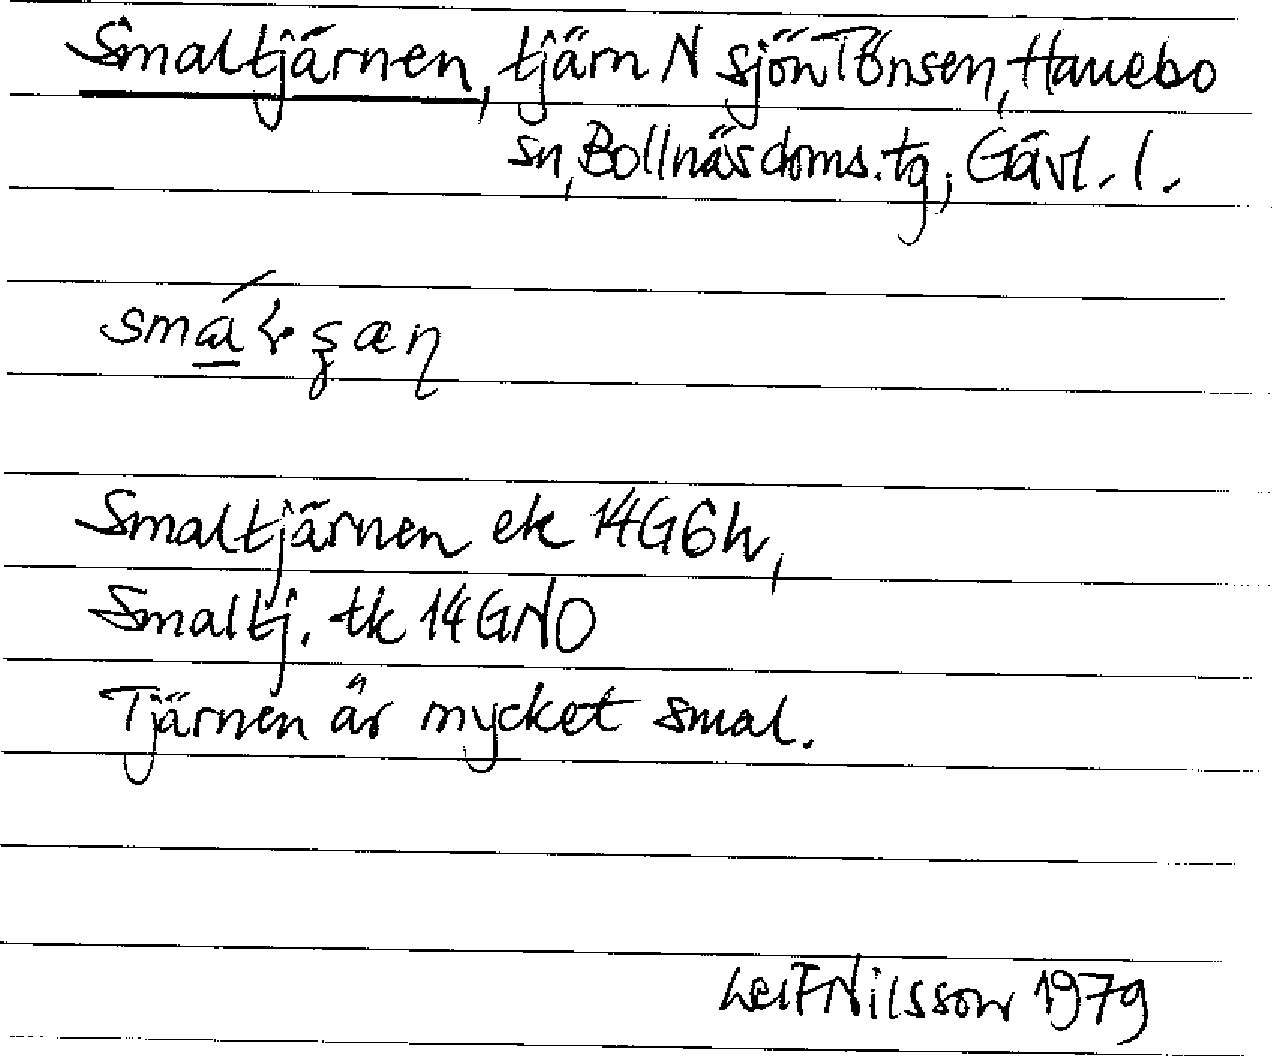 Smaltjärnen, tjärn N sjön Tönsen, Hanebo
sn, Bollnäs doms.tg, Gävl. l.
Smaltjärnen ek 14G6h,
Smaltj. tk 14GNO
Tjärnen är mycket smal.
Leif Nilsson 1979